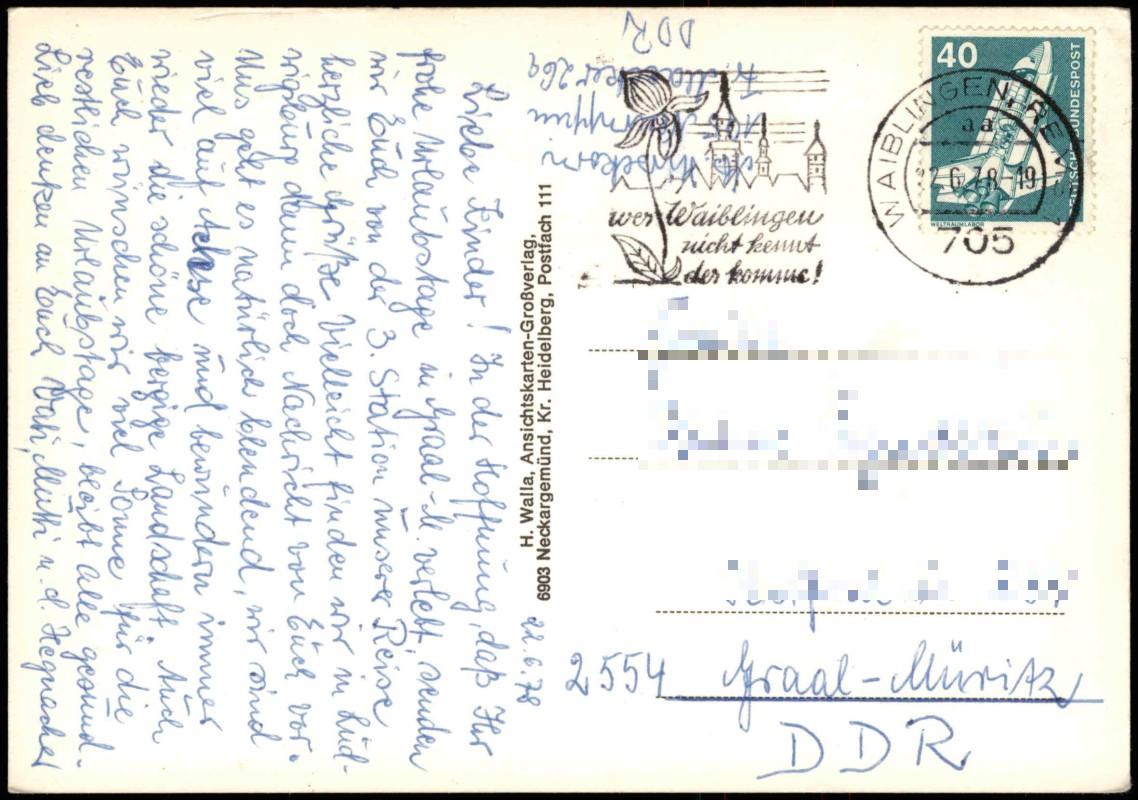 22.6.78
Liebe Kinder! In der Hoffnung, daß Ihr
frohe Urlaubstage in Graal-M. verlebt, senden
wir Euch von der 3. Station unserer Reise
herzliche Grüße. Vielleicht finden wir in Lud-
wigsburg dann doch Nachricht von Euch vor.
Uns geht es natürlich blendend, wir sind
viel auf Achse und bewundern immer
wieder die schöne bergige Landschaft. Auch
Euch wünschen wir viel Sonne für die
restlichen Urlaubstage, bleibt alle gesund.
Lieb denken an Euch Vati, Mutti u. d. Hegnacher
H. Walla, Ansichtskarten-Großverlag,
6903 Neckargemünd, Kr. Heidelberg, Postfach 111
DDR
26a
wer Waiblingen
nicht kennt
der komme!
WAIBLINGEN, REM
aa
6.78-19
705
40
DEUTSCHE BUNDESPOST
WELTRAUMLABOR
2554 Graal-Müritz
DDR